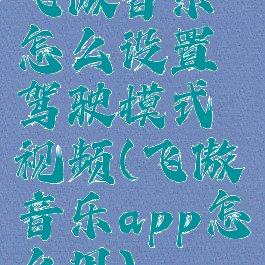 飞傲音乐
怎么设置
驾驶模式
视频(飞傲
音乐app怎
么用)